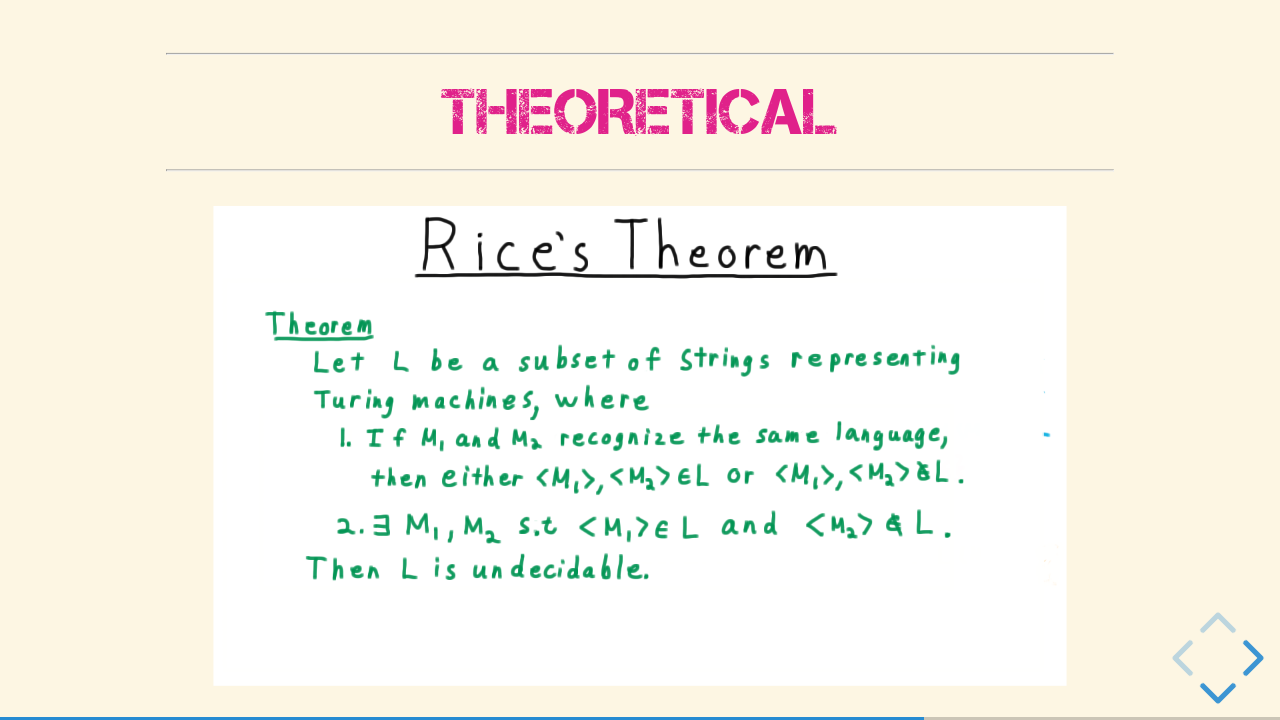 THEORETICAL
Rice's Theorem
Theorem
Let L be a subset of Strings representing
Turing machines, where
1. If M₁ and M₂ recognize the same language,
then either <M₁>,<M₂> ∈ L or <M₁>,<M₂> ∉ L.
2. ∃ M₁, M₂ s.t <M₁> ∈ L and <M₂> ∉ L.
Then L is undecidable.